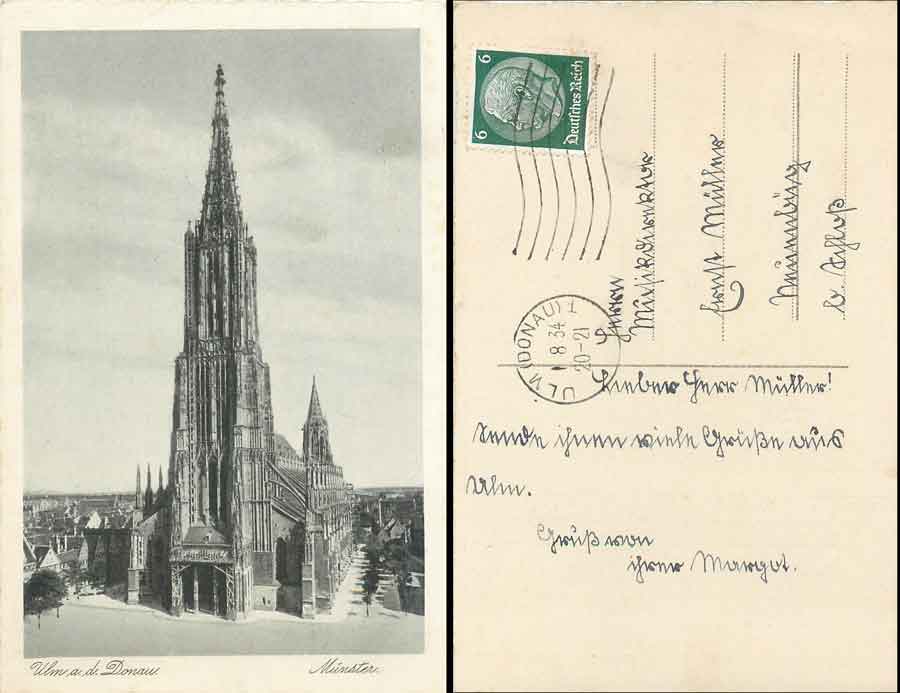 Ulm a. d. Donau.
Münster.
6
6
Deutsches Reich
ULM (DONAU) 1
8 34
20-21
Herrn
Musikdirektor
Ernst Müller
Neuenbürg
b. Schloß
Lieber Herr Müller!
Sende ihnen viele Grüße aus
Ulm.
Gruß von
ihrer Margot.